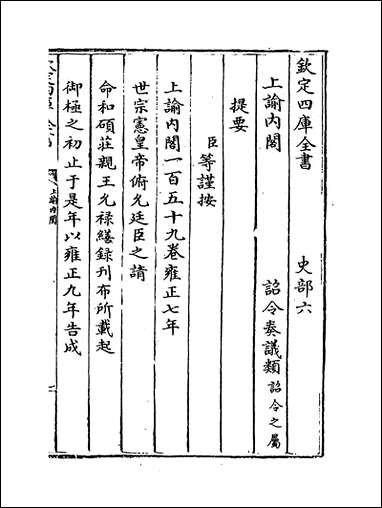 欽定四庫全書　史部六
上諭內閣　詔令奏議類詔令之屬
提要
臣等謹按
上諭內閣一百五十九卷雍正七年
世宗憲皇帝俯允廷臣之請
命和碩莊親王允祿繕録刋布所載起
御極之初止于是年以雍正九年告成
上諭內閣